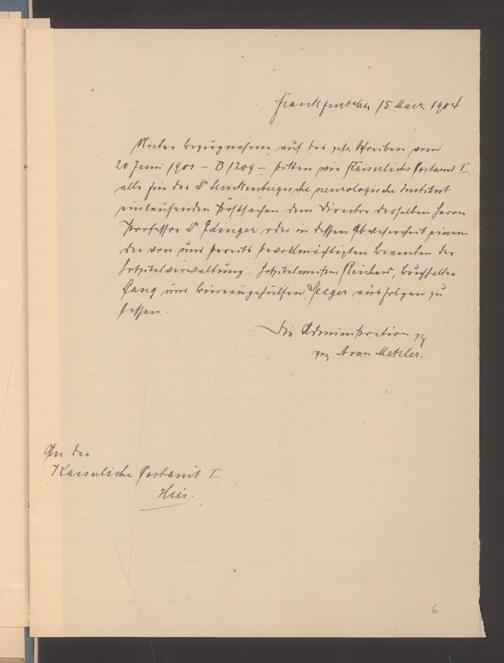 Frankfurt a/M 15 März 1904
Unter Bezugnahme auf das gefl. Schreiben vom
20 Juni 1901 – B 1209 – bitten wir Kaiserliches Postamt I,
alle für das Dr Senckenbergische neurologische Institut
einlaufenden Postsachen dem Director desselben Herrn
Professor Dr Edinger oder in dessen Abwesenheit einem
der von uns bereits bevollmächtigten Beamten der
Hospitalverwaltung, Hospitalmeister Reichard, Buchhalter
Lang und Bureaugehülfen Seeger ausfolgen zu
lassen.
Die Administration
gez. Aron Metzler.
An das
Kaiserliche Postamt I
Hier.
6